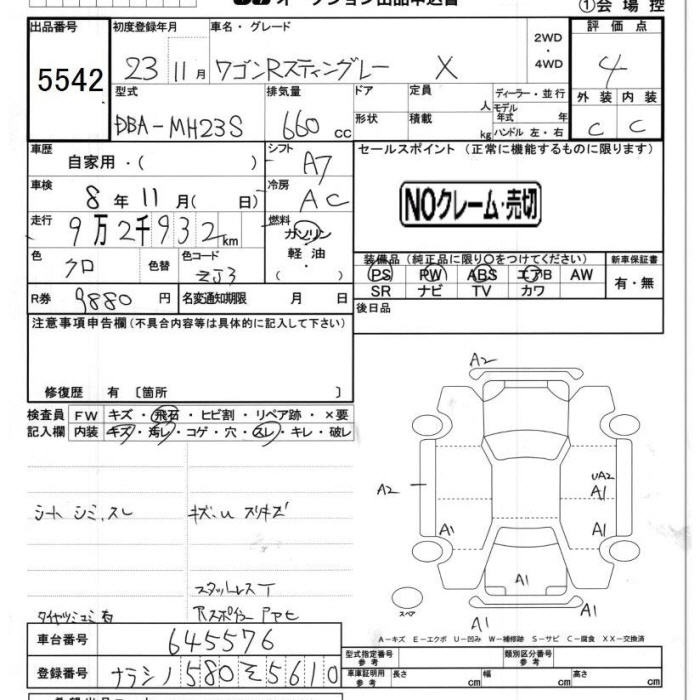 オークション出品申込書 ①会場控
出品番号 初度登録年月 車名・グレード 評価点
5542 23 11月 ワゴンRスティングレー X 2WD・4WD 4
型式 排気量 ドア 定員 人 ディーラー・並行 外装 内装
DBA-MH23S 660cc 形状 積載 kg モデル年式 年 ハンドル 左・右 C C
車歴 自家用・( ) シフト A7 セールスポイント (正常に機能するものに限ります)
車検 8年11月( 日) 冷房 AC NOクレーム・売切
走行 9万2千932km 燃料 ガソリン・軽油・( )
装備品 (純正品に限り○をつけてください) 新車保証書
色 クロ 色替 色コード ZJ3 PS PW ABS エアB AW 有・無
SR ナビ TV カワ
R券 9880円 名変通知期限 月 日 後日品
注意事項申告欄(不具合内容等は具体的に記入して下さい)
修復歴 有 〔箇所 〕
検査員 FW キズ・飛石・ヒビ割・リペア跡・×要
記入欄 内装 キズ・汚レ・コゲ・穴・スレ・キレ・破レ
シート シミ,スレ キズ、U スリキズ
スタットレスT
A2
A2
UA2
A1
A1 A1
A1
A1 A1
スペア
A-キズ E-エクボ U-凹み W-補修跡 S-サビ C-腐食 XX-交換済
車台番号 645576
型式指定番号 参考 類別区分番号 参考
登録番号 ナラシノ 580 そ 5610
車庫証明用 参考 長さ cm 幅 cm 高さ cm